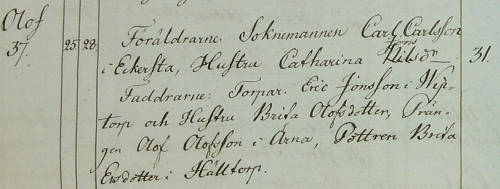 Olof
37. 25. 28. Föräldrarne: Soknemannen Carl Carlsson 31.
i Eckersta, Hustru Catharina Jöns
Faddrarne: Torpar. Eric Jönsson i
torp och Hustru Brita Olofsdotter, Drän-
gen Olof Olofsson i Arna, Pottren Brita
Ersdotter i Hälltorp.